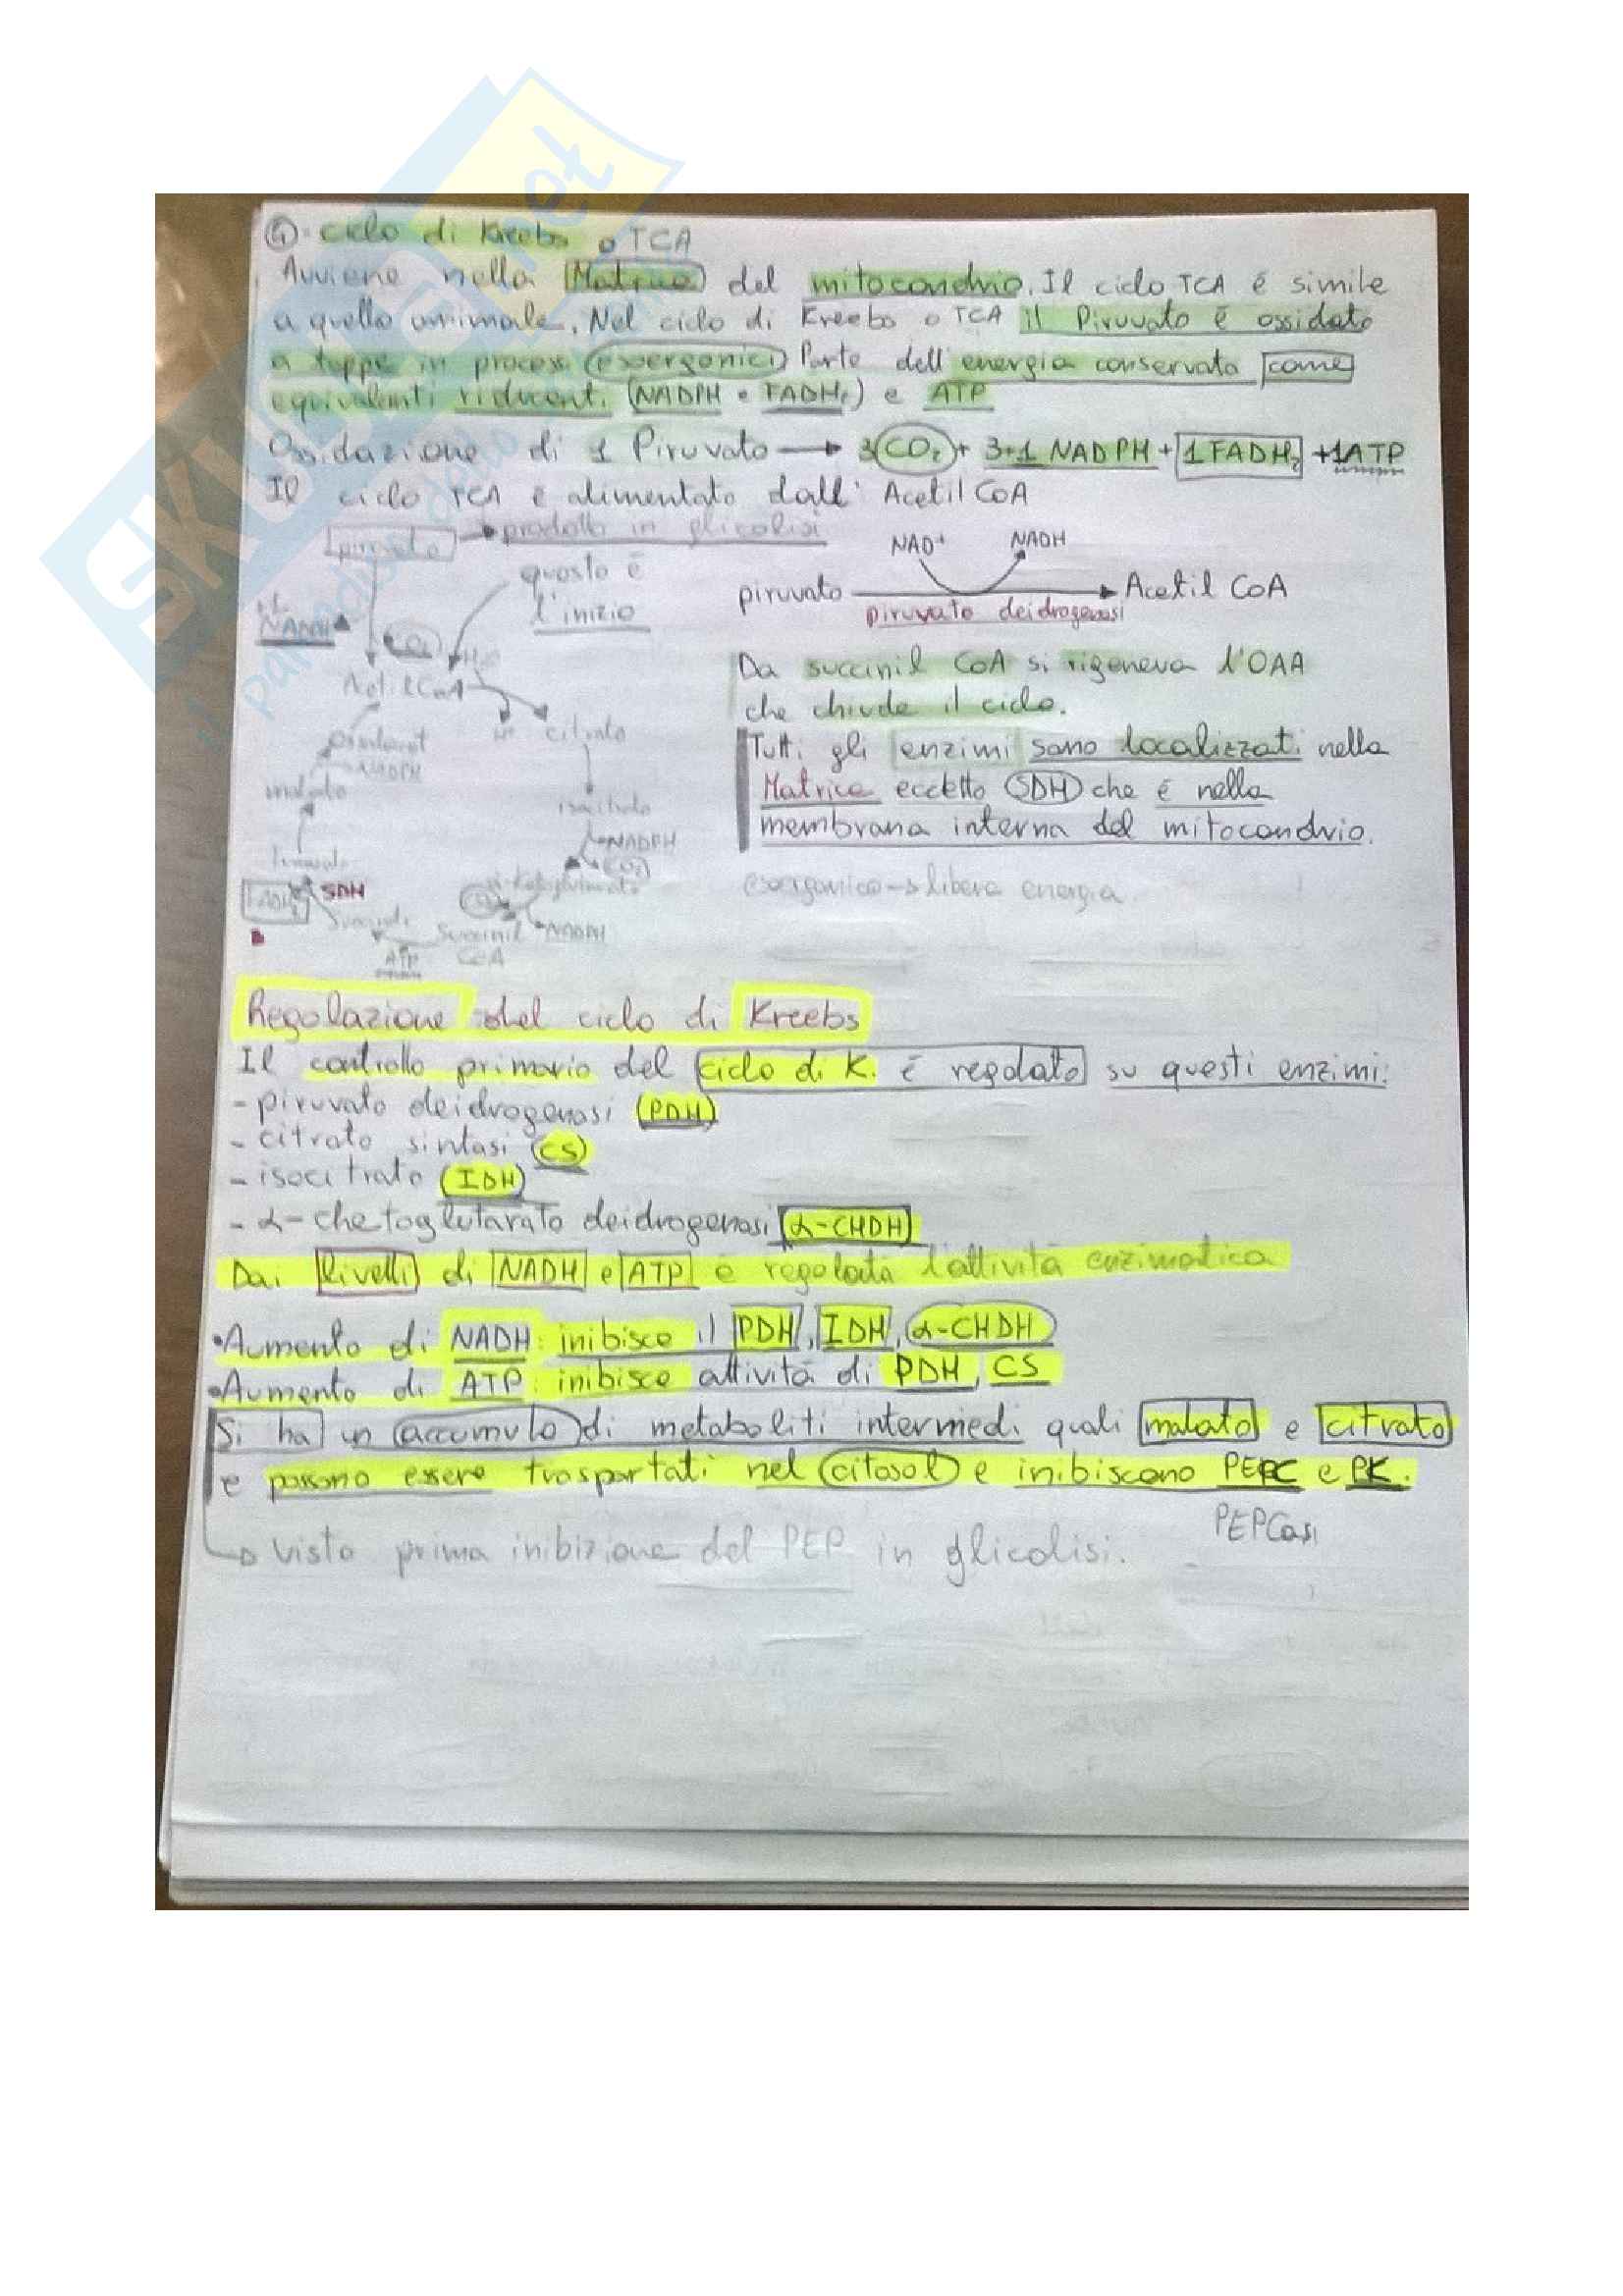 ④ Ciclo di Kreebs o TCA
Avviene nella Matrice del mitocondrio. Il ciclo TCA è simile
a quello animale. Nel ciclo di Kreebs o TCA il Piruvato è ossidato
a tappe in processi esoergonici Parte dell'energia conservata come
equivalenti riducenti (NADPH e FADH2) e ATP
Ossidazione di 1 Piruvato → 3CO2 + 3+1 NADPH + 1 FADH2 + 1ATP
Il ciclo TCA è alimentato dall' Acetil CoA
piruvato → prodotto in glicolisi
questo è
l'inizio
NADH
CO2
H2O
Acetil CoA
citrato
NADPH
malato
isocitrato
NADPH
CO2
α-ketoglutarato
FADH2 SDH
Succinil CoA
NADPH
ATP
NAD+ NADH
piruvato → Acetil CoA
piruvato deidrogenasi
Da succinil CoA si rigenera l'OAA
che chiude il ciclo.
Tutti gli enzimi sono localizzati nella
Matrice eccetto SDH che è nella
membrana interna del mitocondrio.
esoergonico → libera energia.
Regolazione del ciclo di Kreebs
Il controllo primario del ciclo di K. è regolato su questi enzimi:
- piruvato deidrogenasi (PDH)
- citrato sintasi (CS)
- isocitrato (IDH)
- α-chetoglutarato deidrogenasi α-CHDH
Dai livelli di NADH e ATP è regolata l'attività enzimatica
• Aumento di NADH: inibisce il PDH, IDH, α-CHDH
• Aumento di ATP: inibisce attività di PDH, CS
Si ha un accumulo di metaboliti intermedi quali malato e citrato
e possono essere trasportati nel citosol e inibiscono PEPC e PK.
PEPCasi
→ Visto prima inibizione del PEP in glicolisi.